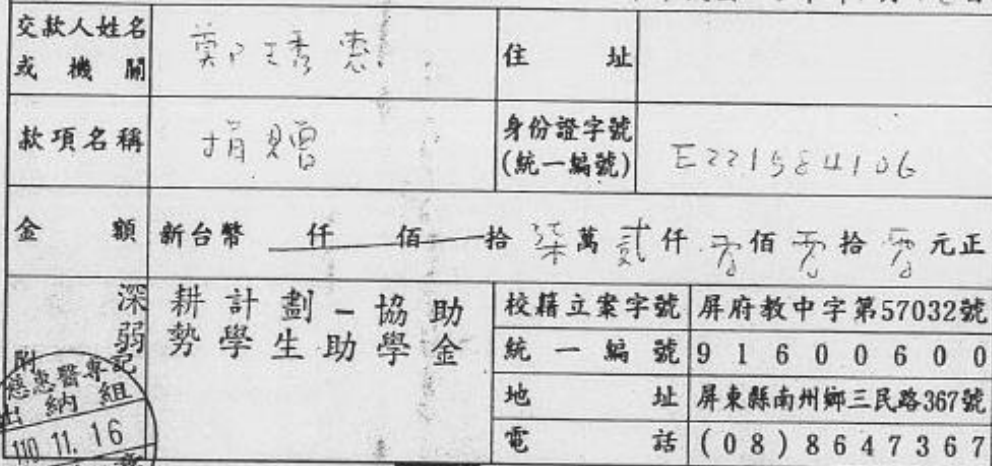 交款人姓名或機關 鄭琇惠 住址
款項名稱 捐贈 身份證字號(統一編號) E221584106
金額 新台幣 仟 佰 拾 柒萬 貳仟 零佰 零拾 零元正
附記 深耕計劃-協助弱勢學生助學金
校籍立案字號 屏府教中字第57032號
統一編號 91600600
地址 屏東縣南州鄉三民路367號
電話 (08)8647367
慈惠醫專
出納組
110.11.16